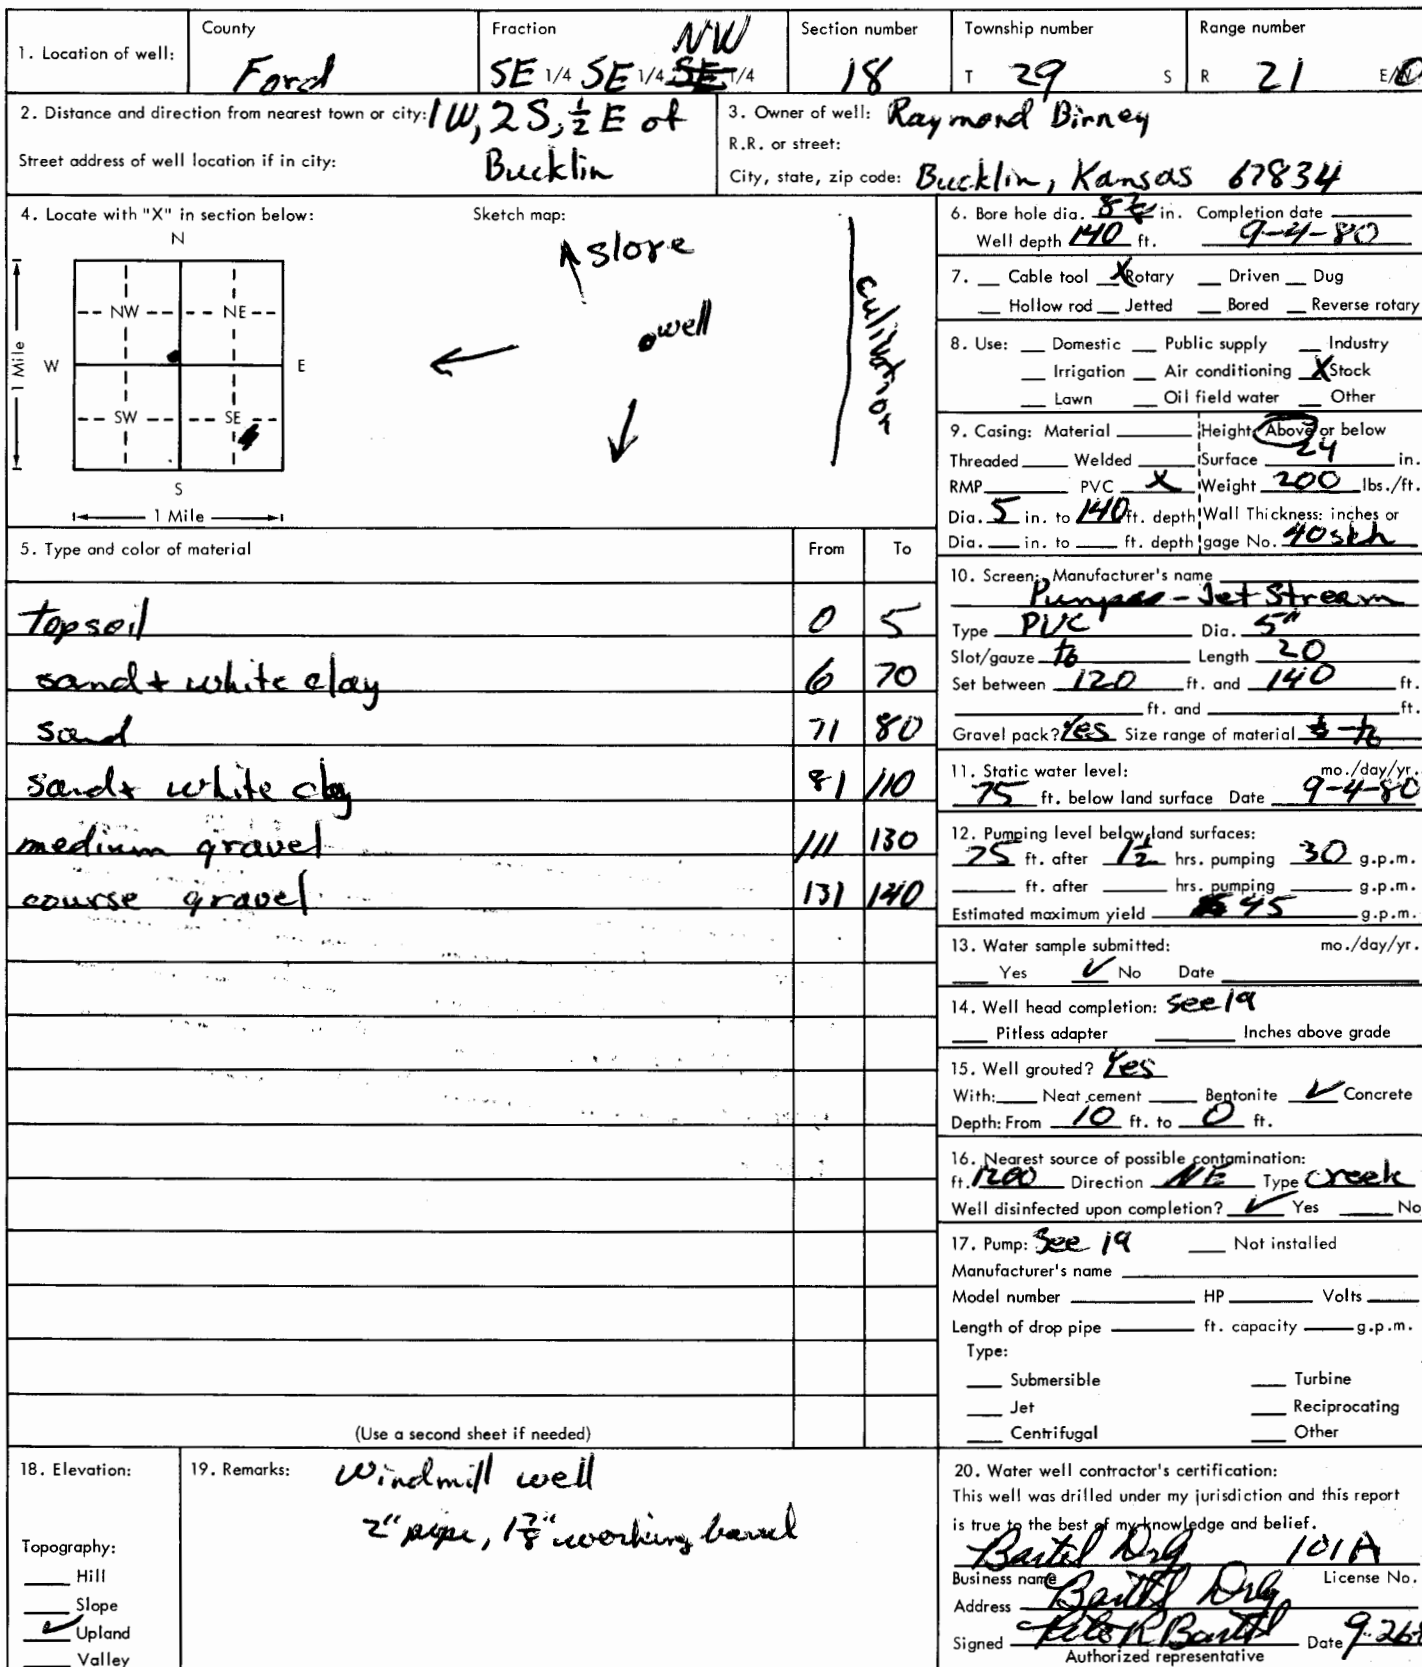 1. Location of well:
County
Ford
Fraction
NW
SE 1/4 SE 1/4 SE 1/4
Section number
18
Township number
T 29 S
Range number
R 21 E/W
2. Distance and direction from nearest town or city: 1W, 2S, ½ E of
Street address of well location if in city: Bucklin
3. Owner of well: Raymond Birney
R.R. or street:
City, state, zip code: Bucklin, Kansas 67834
4. Locate with "X" in section below:
N
NW NE
W E
SW SE
S
1 Mile
1 Mile
Sketch map:
slope
well
cultivation
5. Type and color of material From To
topsoil 0 5
sand + white clay 6 70
sand 71 80
sand + white clay 81 110
medium gravel 111 130
course gravel 131 140
(Use a second sheet if needed)
6. Bore hole dia. in. Completion date
Well depth 140 ft. 9-4-80
7. Cable tool X Rotary Driven Dug
Hollow rod Jetted Bored Reverse rotary
8. Use: Domestic Public supply Industry
Irrigation Air conditioning X Stock
Lawn Oil field water Other
9. Casing: Material Height: Above or below
Threaded Welded Surface 24 in.
RMP PVC X Weight 200 lbs./ft.
Dia. 5 in. to 140 ft. depth Wall Thickness: inches or
Dia. in. to ft. depth gage No. 40 sch
10. Screen: Manufacturer's name
- Jet Stream
Type PVC Dia. 5"
Slot/gauze Length 20
Set between 120 ft. and 140 ft.
ft. and ft.
Gravel pack? Yes Size range of material
11. Static water level: mo./day/yr.
75 ft. below land surface Date 9-4-80
12. Pumping level below land surfaces:
75 ft. after 1½ hrs. pumping 30 g.p.m.
ft. after hrs. pumping g.p.m.
Estimated maximum yield 45 g.p.m.
13. Water sample submitted: mo./day/yr.
Yes ✓ No Date
14. Well head completion: See 19
Pitless adapter Inches above grade
15. Well grouted? Yes
With: Neat cement Bentonite ✓ Concrete
Depth: From 10 ft. to 0 ft.
16. Nearest source of possible contamination:
ft. 1200 Direction NE Type Creek
Well disinfected upon completion? ✓ Yes No
17. Pump: See 19 Not installed
Manufacturer's name
Model number HP Volts
Length of drop pipe ft. capacity g.p.m.
Type:
Submersible Turbine
Jet Reciprocating
Centrifugal Other
18. Elevation:
Topography:
Hill
Slope
✓ Upland
Valley
19. Remarks: Windmill well
2" pipe, 1⅞" working barrel
20. Water well contractor's certification:
This well was drilled under my jurisdiction and this report
is true to the best of my knowledge and belief.
Bartel Drlg 101A
Business name License No.
Address Bartel Drlg
Signed Bartel Date
Authorized representative